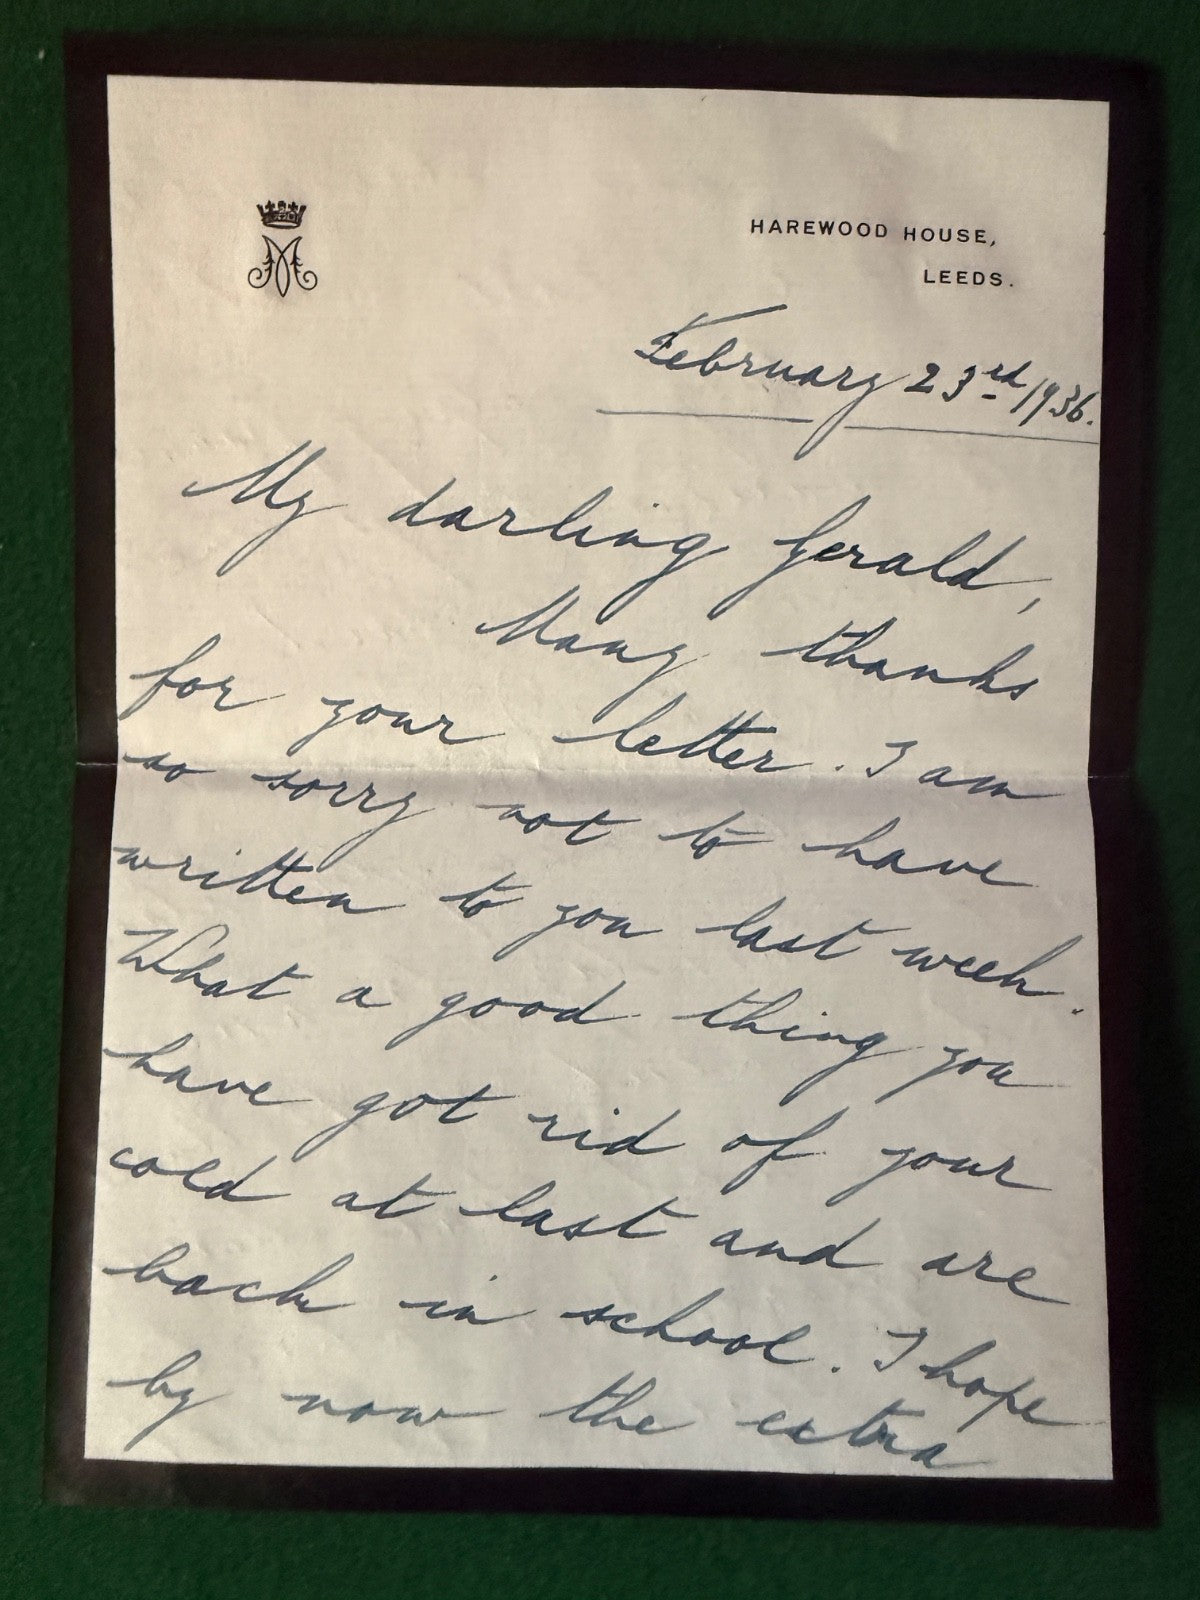 HAREWOOD HOUSE,
LEEDS.
February 23rd/1936.
My darling Gerald,
Many thanks
for your letter. I am
so sorry not to have
written to you last week.
What a good thing you
have got rid of your
cold at last and are
back in school. I hope
by now the extra